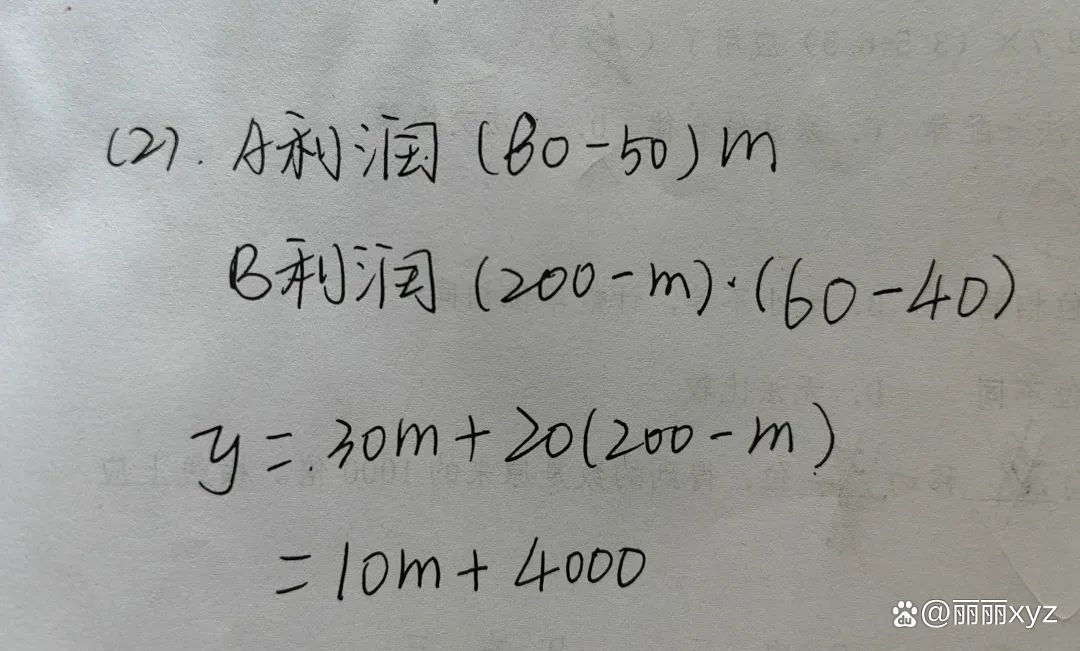 (2). A利润 (80-50)m
B利润 (200-m)·(60-40)
y=30m+20(200-m)
=10m+4000
@丽丽xyz